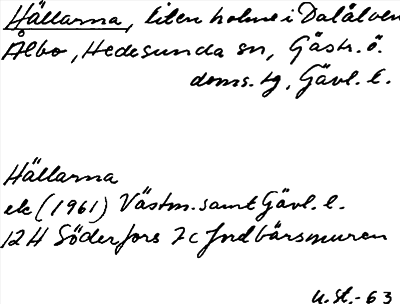 Hällarna, liten holme i Dalälven
Ålbo, Hedesunda sn, Gästr. ö.
doms. tg, Gävl. l.
Hällarna
ek (1961) Västm. samt Gävl. l.
12H Söderfors 7c Jordbärsmuren
U.St.-63